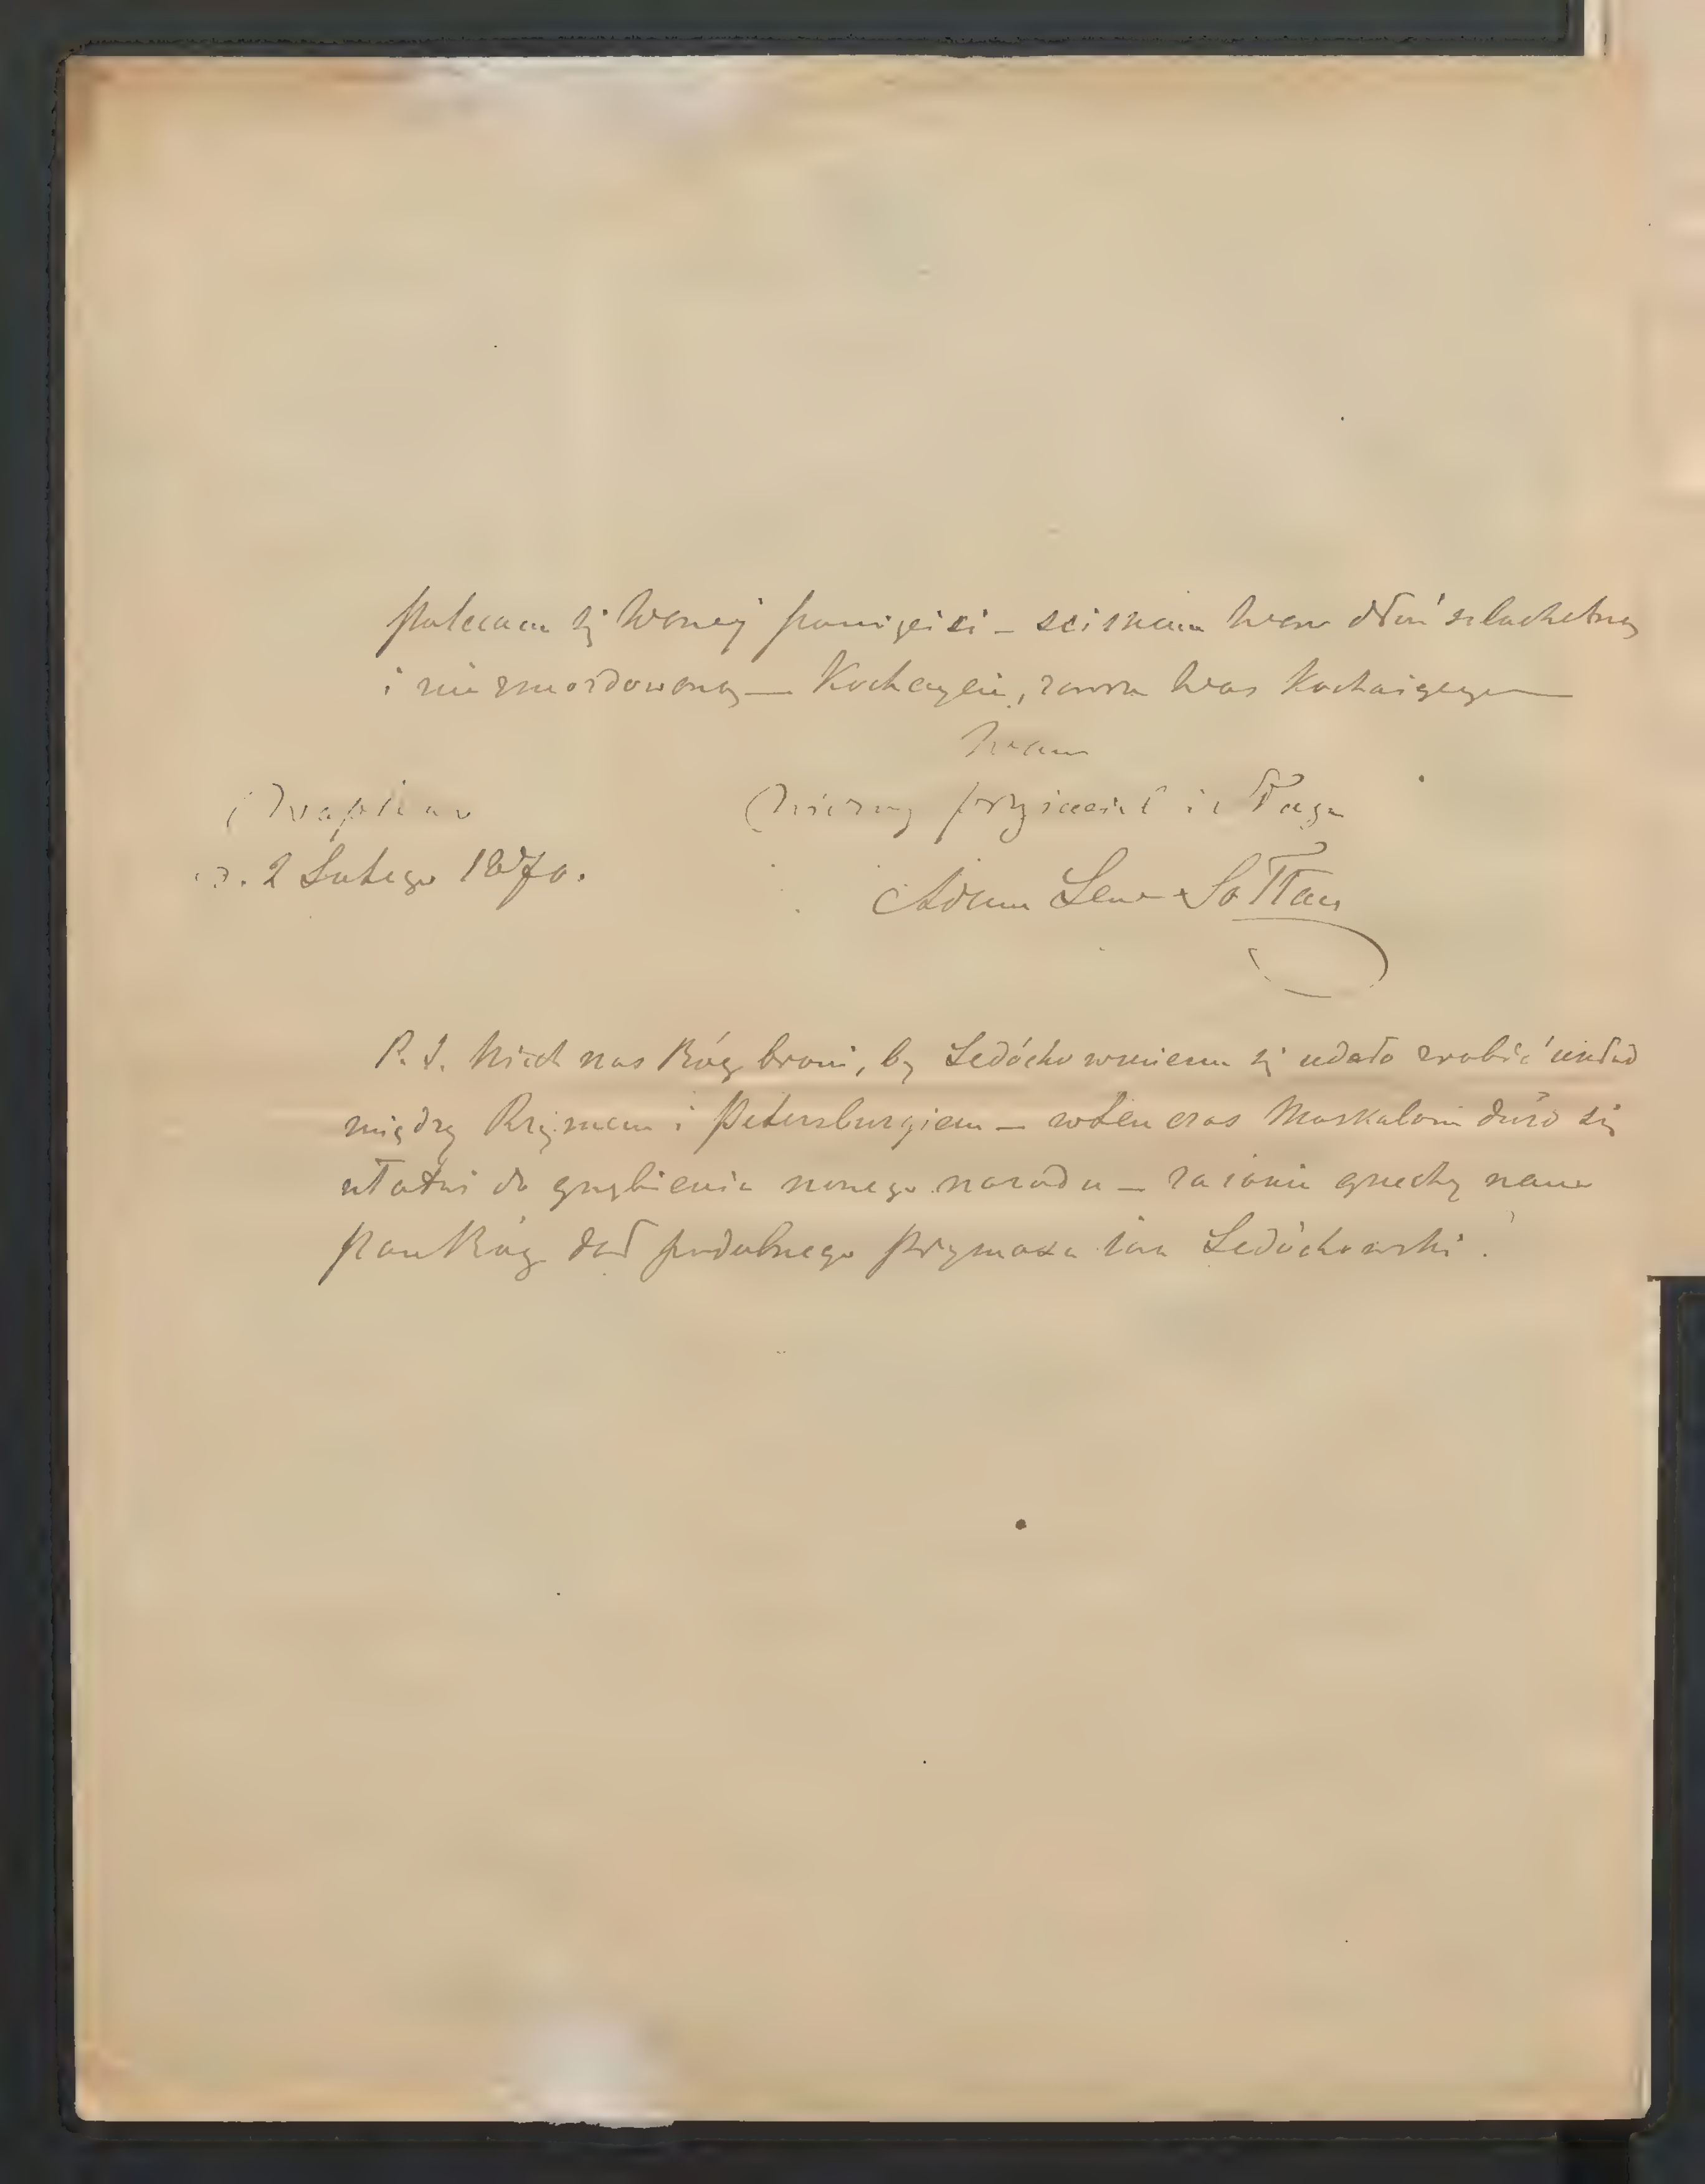 Polecam się Waszej pamięci – sciskam Wam dłoń szlachetną
i niezmordowaną — Kochajcie, zawsze Was kochającego
Wam
Wierny przyjaciel i sługa
d. 2 Lutego 1870.
Adam Lew Sołtan
P. S. Niech nas Bóg broni, by Ledóchowskiemu się udało zrobić układ
między Rzymem i Petersburgiem – wtenczas Moskalom dużo się
ułatwi do gnębienia naszego narodu – za jakie grzechy nam
Pan Bóg dał podobnego prymasa jak Ledóchowski!